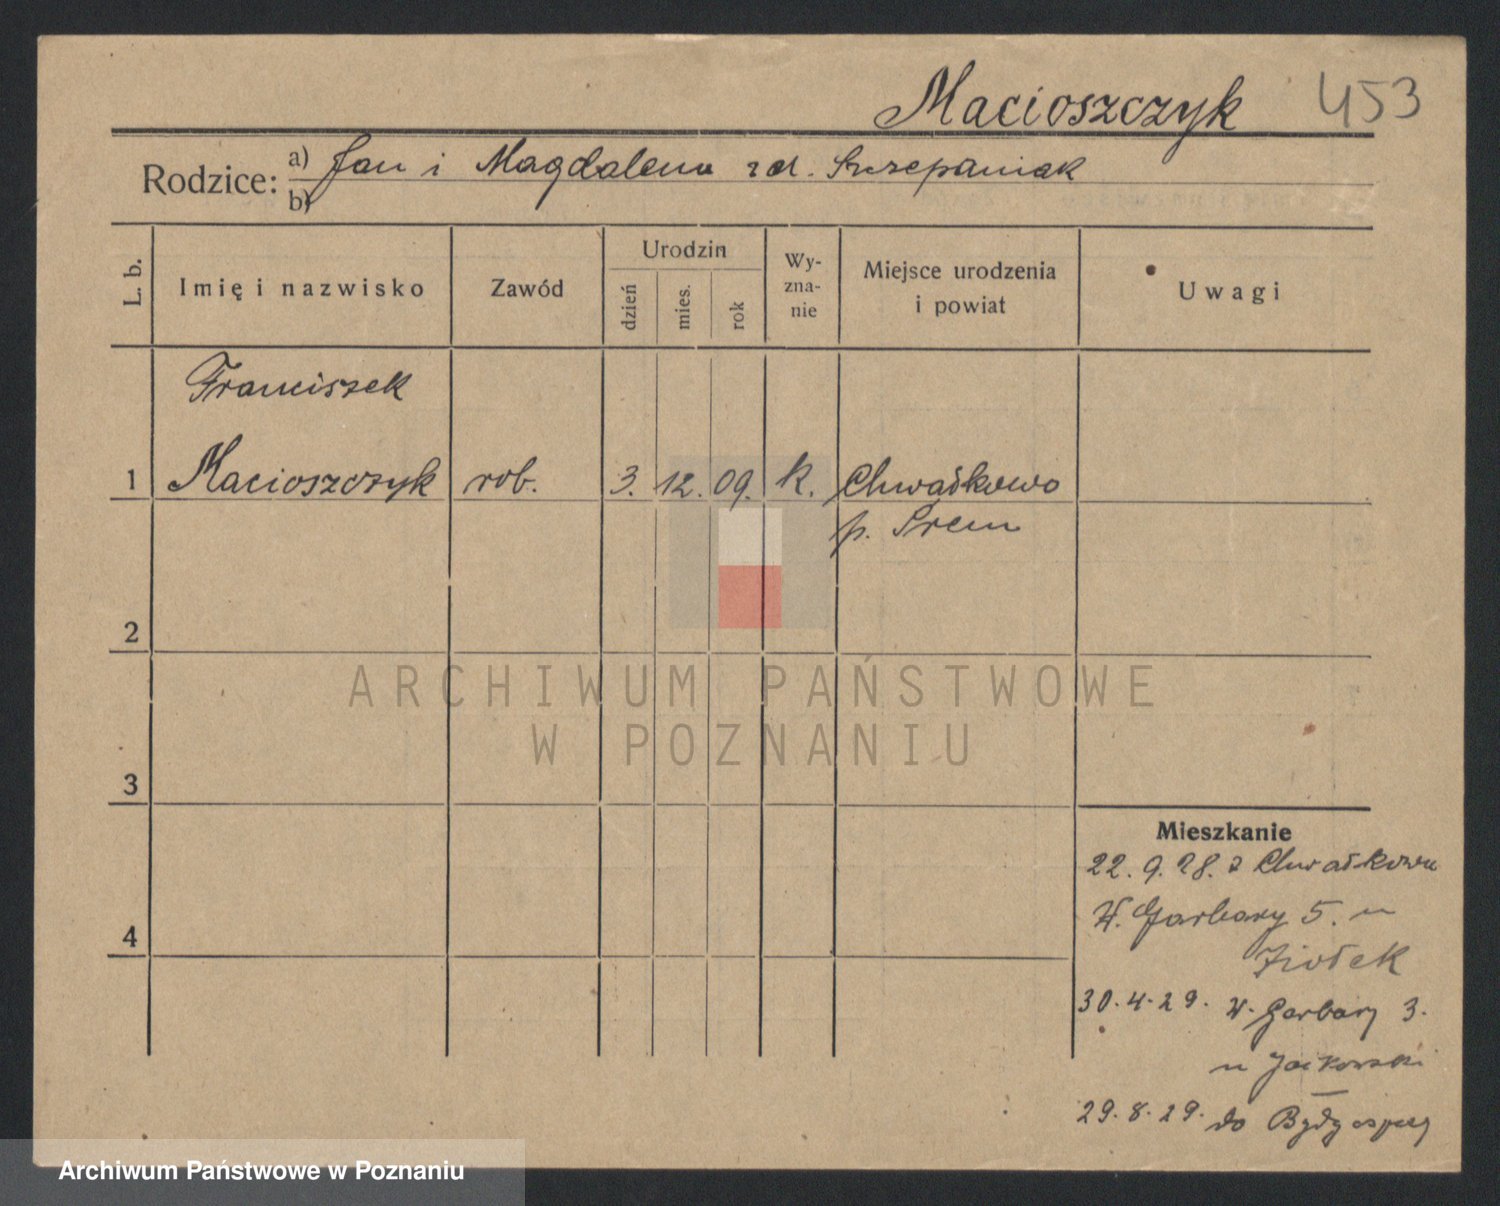 Macioszczyk 453
Rodzice: a) Jan i Magdalena zd. Szczepaniak
b)
L. b.
Imię i nazwisko
Zawód
Urodzin
dzień
mies.
rok
Wy-
zna-
nie
Miejsce urodzenia
i powiat
Uwagi
Franciszek
1 Macioszczyk rob. 3. 12. 09. k. Chwałkowo
p. Śrem
2
3
4
ARCHIWUM PAŃSTWOWE
W POZNANIU
Mieszkanie
22. 9. 28. z Chwałkowa
W. Garbary 5. u
Ziołek
30.4.29. W. Garbary 3.
u
29.8.29. do Bydgoszczy
Archiwum Państwowe w Poznaniu